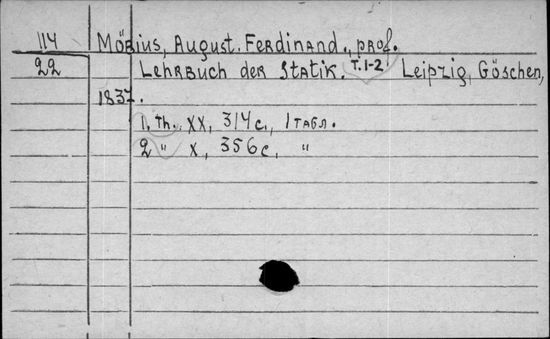 114 Möbius, August. Ferdinand., prof.
22 Lehrbuch der Statik. T.1-2 Leipzig, Göschen,
1837.
1. Th. XX, 314 с., 1 табл.
2 " X, 356 с, "